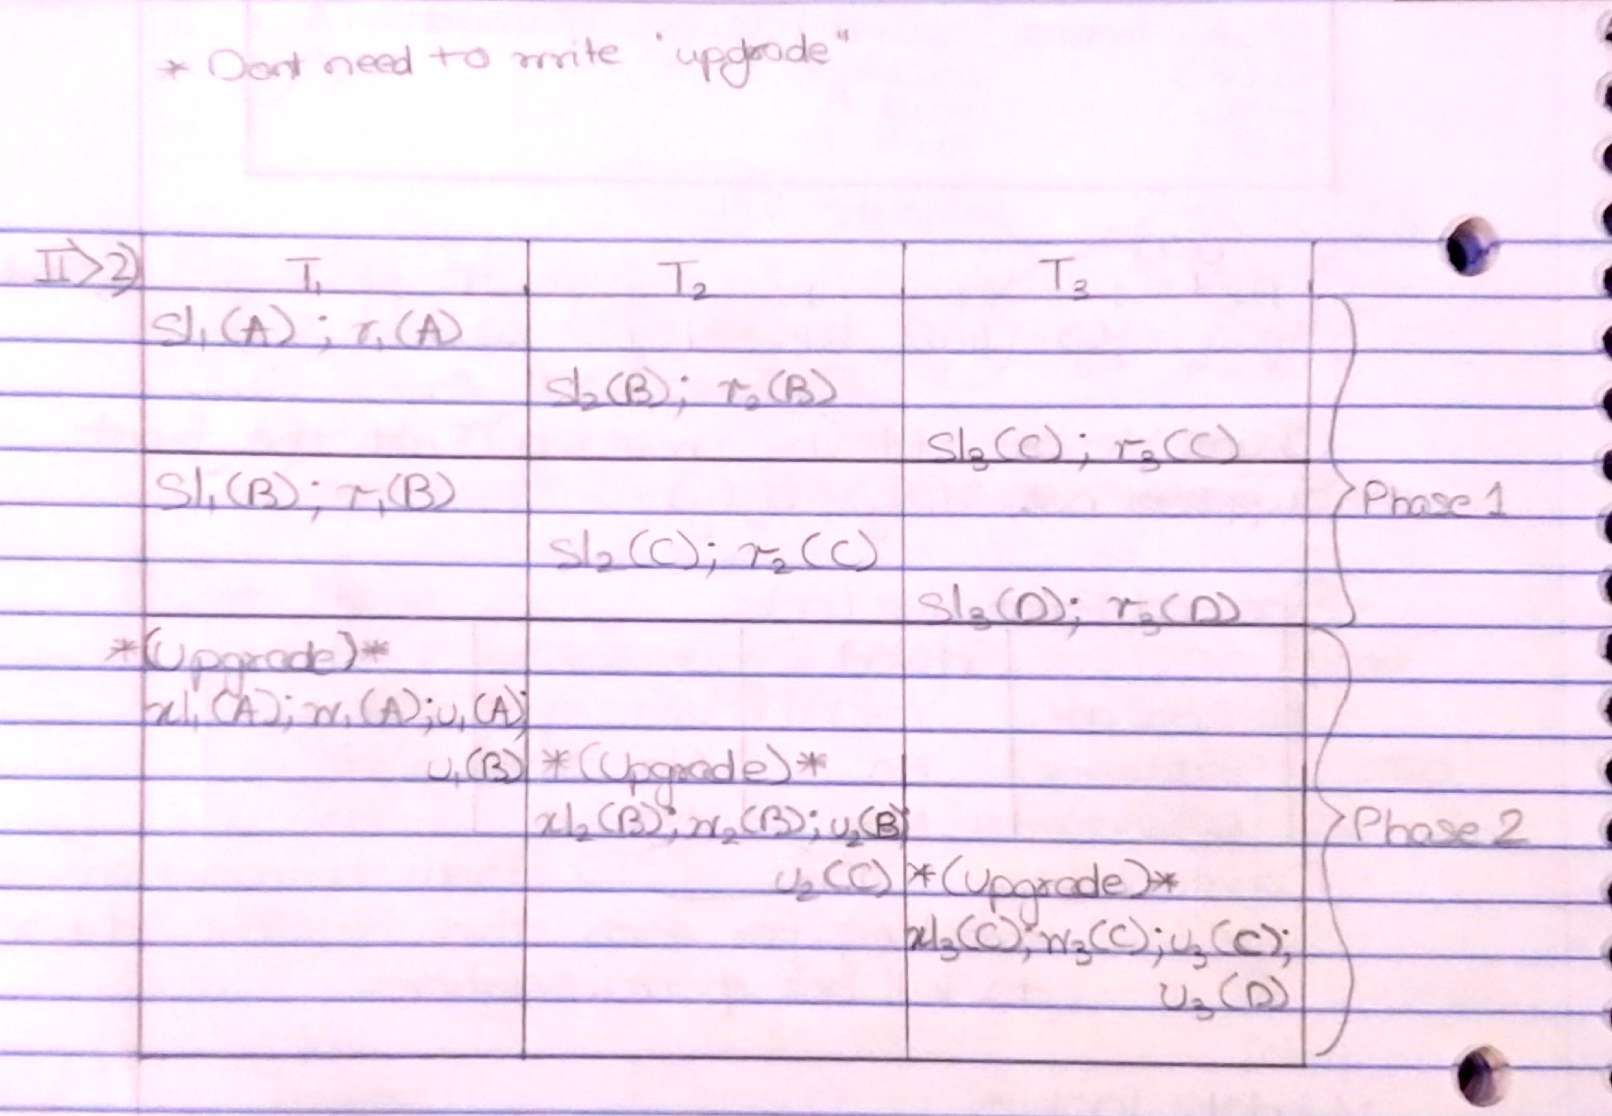 * Dont need to write "upgrade"
II>2) T₁ T₂ T₃
Sl₁(A); r₁(A)
Sl₂(B); r₂(B)
Sl₃(C); r₃(C)
Sl₁(B); r₁(B) Phase 1
Sl₂(C); r₂(C)
Sl₃(D); r₃(D)
*(Upgrade)*
xl₁(A); w₁(A); u₁(A);
u₁(B) *(Upgrade)*
xl₂(B); w₂(B); u₂(B) Phase 2
u₂(C) *(Upgrade)*
xl₃(C); w₃(C); u₃(C);
u₃(D)